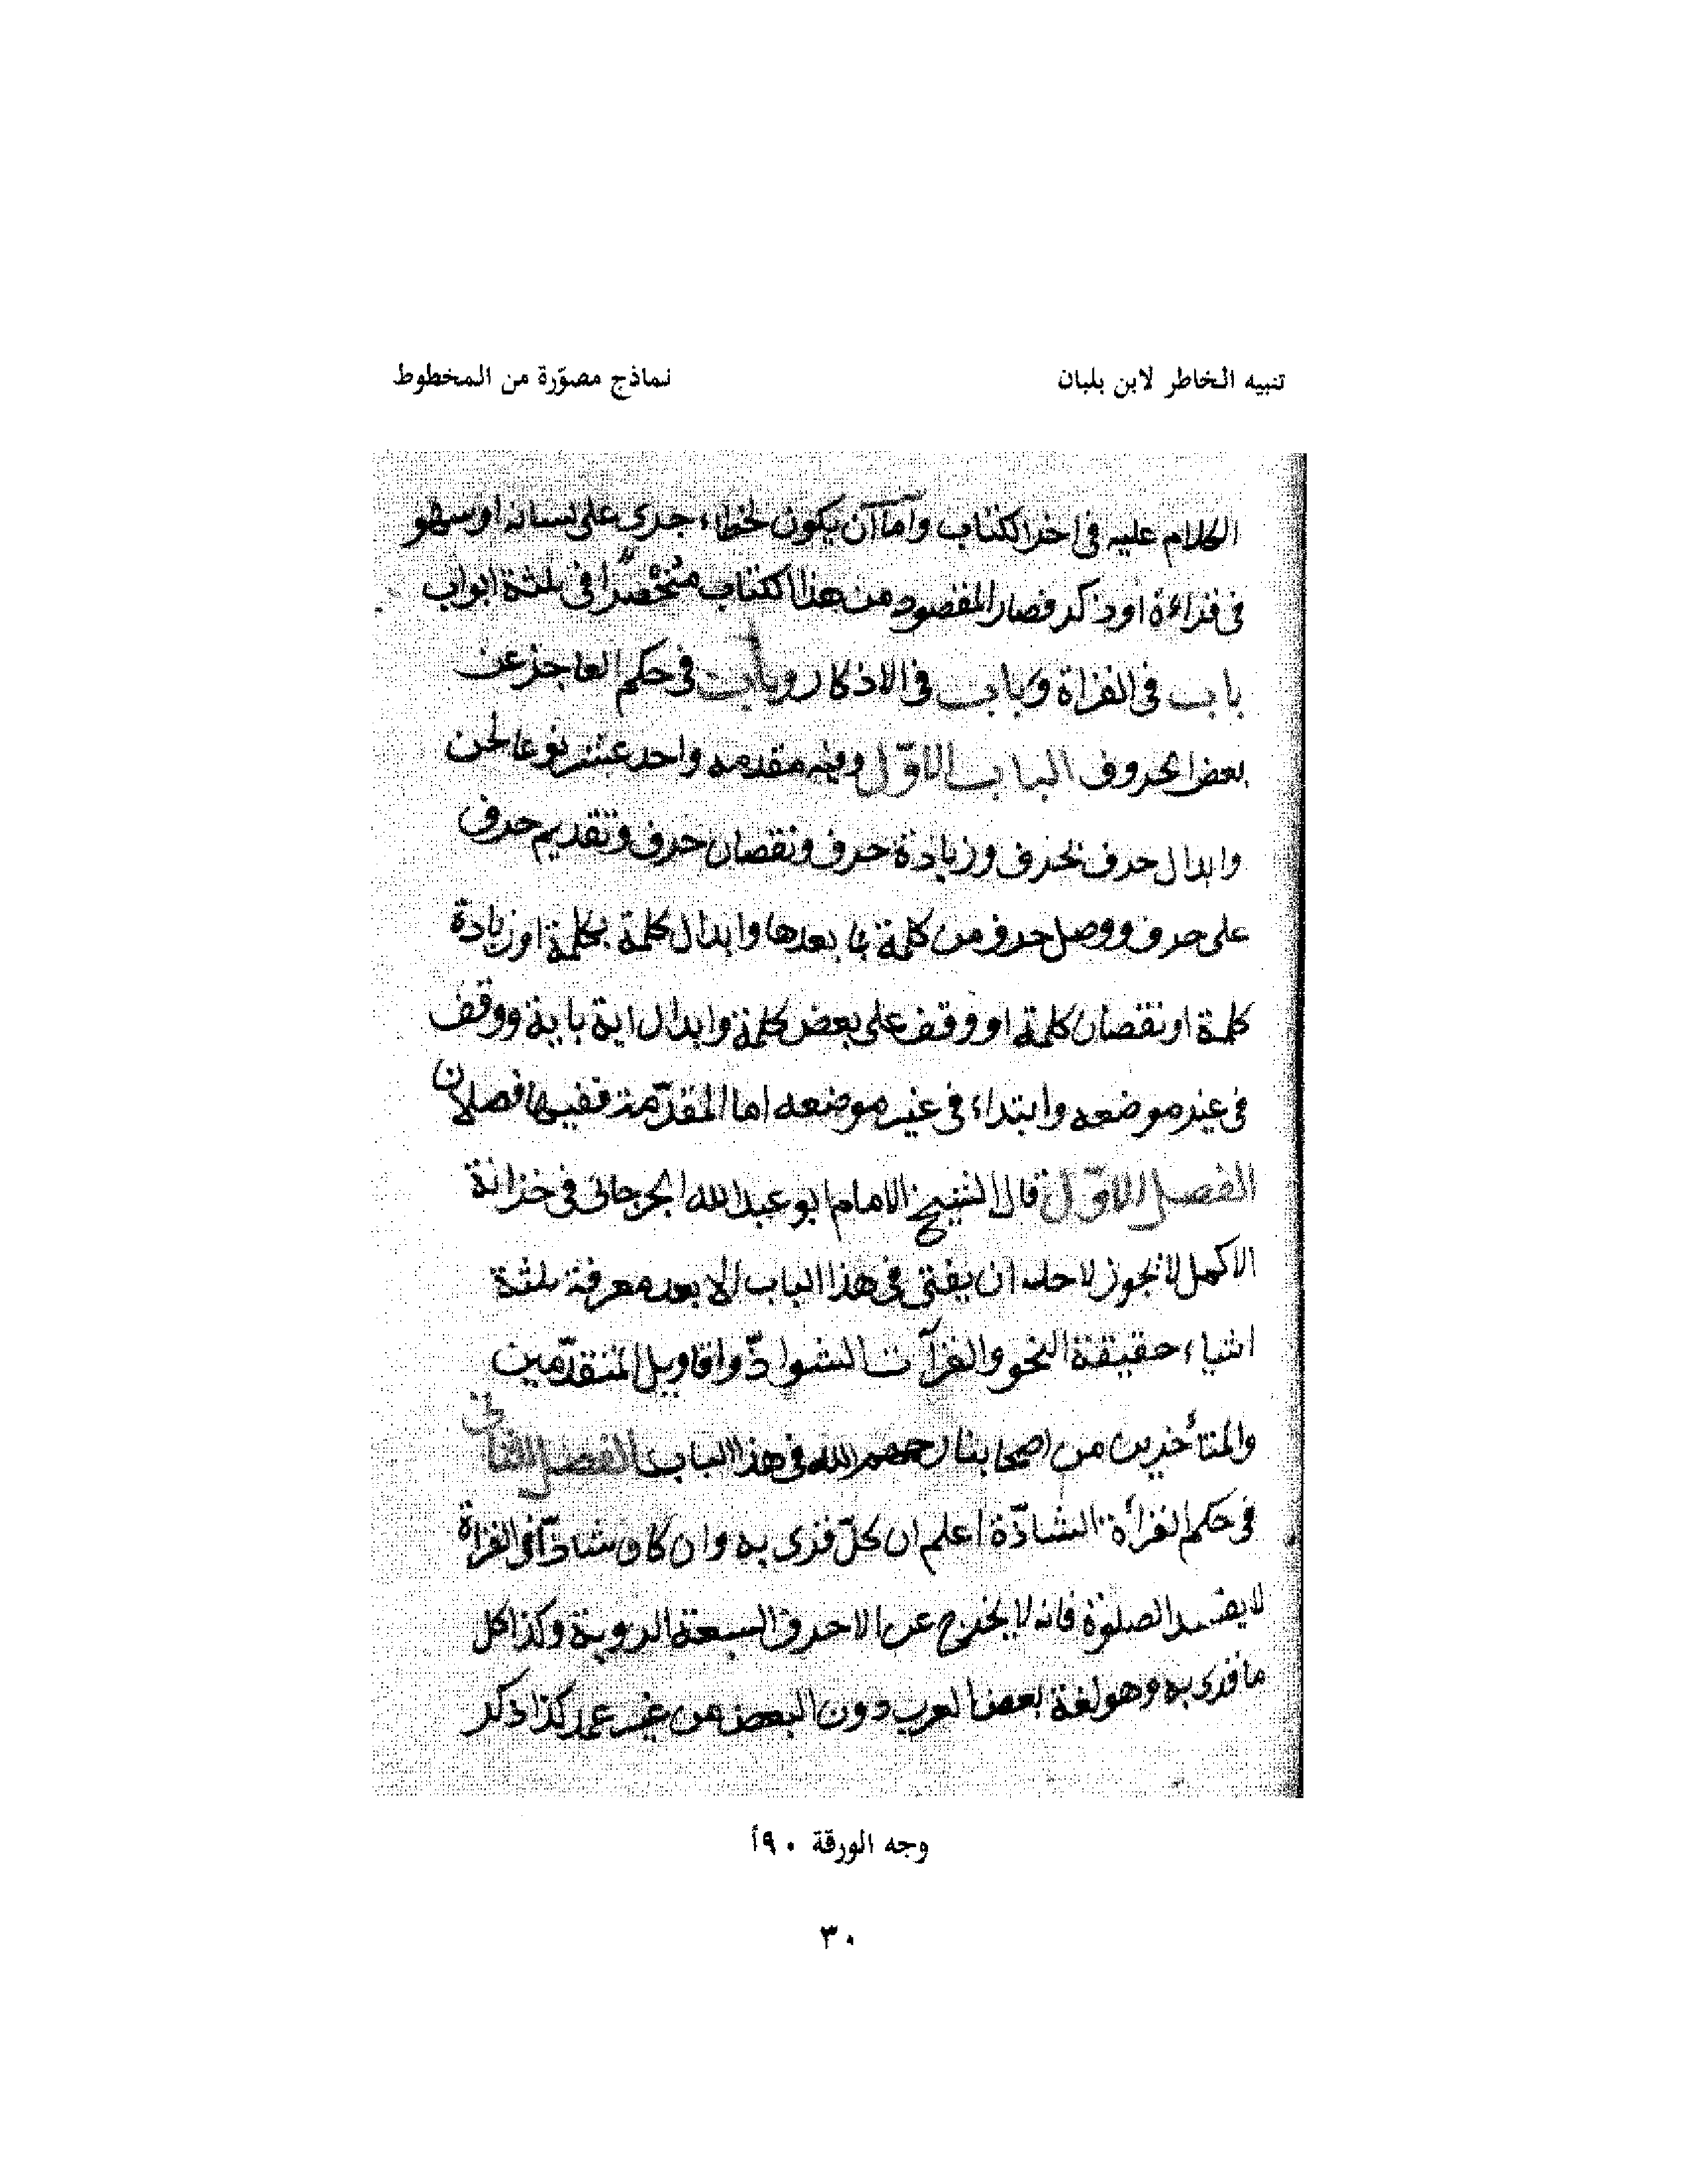 تنبيه الخاطر لابن بلبان
نماذج مصوّرة من المخطوط
الكلام عليه فى اخر الكتاب وأما أن يكون لخطاء جرى على لسانه او سهو
فى قراءة او ذكر فصار المقصود من هذا الكتاب منحصرًا فى ثلثة ابواب
باب فى القراة وباب فى الاذكار وباب فى حكم العاجز عن
بعض الحروف الباب الاوّل وفيه مقدمه واحد عشر نوعا لحن
وابدال حرف بحرف وزيادة حرف ونقصان حرف وتقديم حرف
على حرف ووصل حرف من كلمة بما بعدها وابدال كلمة بكلمة او زيادة
كلمة او نقصان كلمة او وقف على بعض كلمة وابدال اية باية ووقف
فى غير موضعه وابتداء فى غير موضعه اما المقدّمة ففيها فصلان
الفصل الاوّل قال الشيخ الامام ابو عبد الله الجرجانى فى خزانة
الاكمل لا يجوز لاحد ان يفتى فى هذا الباب الا بعد معرفة ثلثة
اشياء حقيقة النحو والقرآت الشواذّ واقاويل المتقدّمين
والمتأخرين من اصحابنا رحمهم الله فى هذا الباب الفصل الثانى
فى حكم القرأة الشاذّة اعلم ان كلّ قرى به وان كان شاذّا فى القراة
لا يفسد الصلوة فانه لا يخرج عن الاحرف السبعة المروية وكذا كل
ما قرى به وهو لغة بعض العرب دون البعض من غير عمد كذا ذكر
وجه الورقة ٩٠أ
٣٠